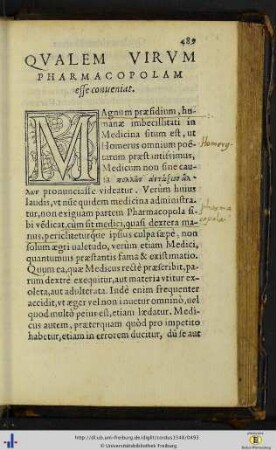 489
QVALEM VIRVM
PHARMACOPOLAM
esse conueniat.
MAgnum præsidium, hu-
manæ imbecillitati in
Medicina situm est, ut
Homerus omnium poë-
tarum præstantissimus,
Medicum non sine cau-
sa πολλῶν ἀντάξιον ἄλ-
λων pronunciasse videatur. Verùm huius
laudis, vt núc quidem medicina administra-
tur, non exiguam partem Pharmacopola si-
bi vēdicat, cùm sit medici, quasi dextera ma-
nus, periclíteturque ipsius culpa sæpè, non
solum ægri ualetudo, verùm etiam Medici,
quantumuis præstantis fama & existimatio.
Quum ea, quæ Medicus rectè præscribit, pa-
rum dextrè exequitur, aut materia vtitur ex-
oleta, aut adulterata. Indè enim frequenter
accidit, vt æger vel non iuuetur omninò, uel
quod multò peius est, etiam lædatur. Medi-
cus autem, præterquam quòd pro impetito
habetur, etiam in errorem ducitur, dū se aut
Homerg
pharma
copolæ
http://dl.ub.uni-freiburg.de/diglit/cordus1548/0493
© Universitätsbibliothek Freiburg